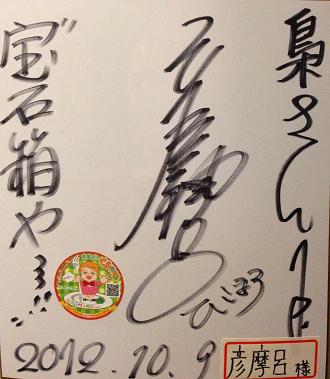 梟さん江
彦摩呂
ひこまろ
宝石箱や〜!!
2012.10.9
彦摩呂様